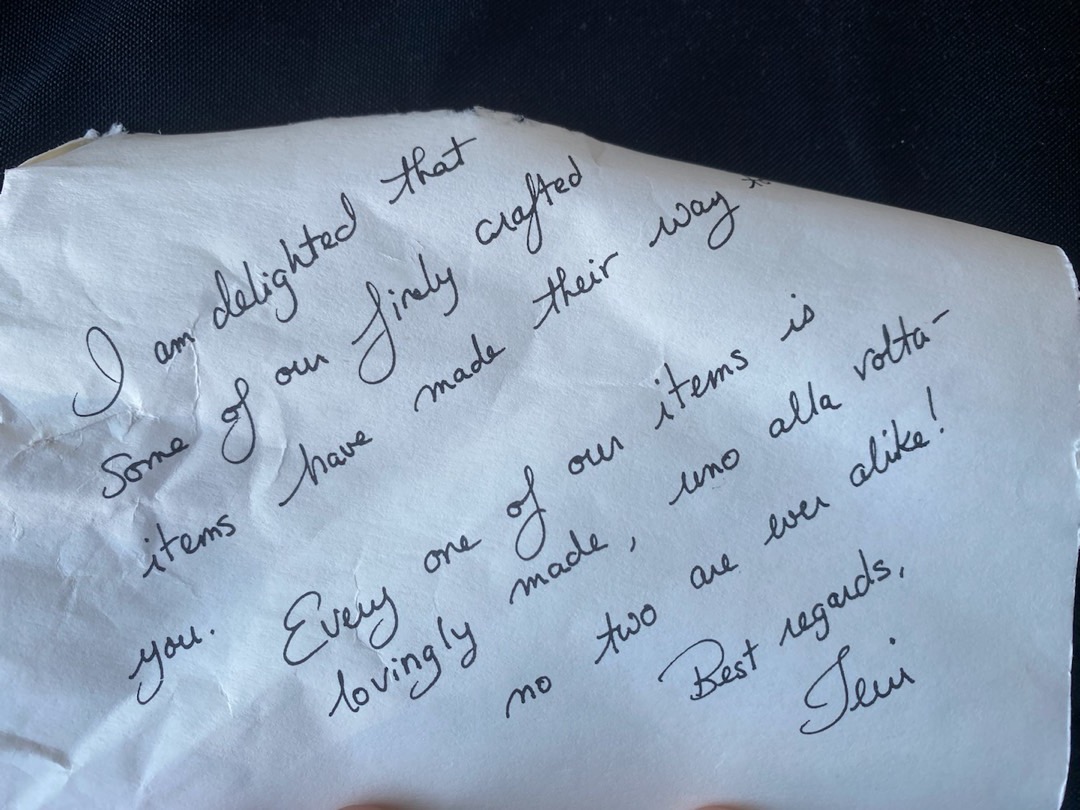 I am delighted that
Some of our finely crafted
items have made their way to
you. Every one of our items is
lovingly made, uno alla volta-
no two are ever alike!
Best regards,